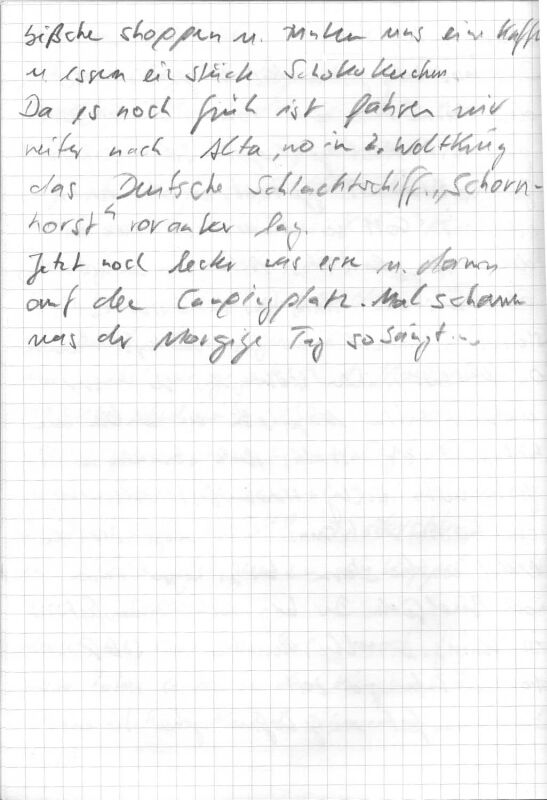 bißche shoppen u. trinken uns eine Kaffe
u essen ein stück Schokokuchen.
Da es noch früh ist fahren wir
weiter nach Alta, wo in 2. Weltkrieg
das Deutsche Schlachtschiff „Scharn-
horst" vor anker lag.
Jetzt noch lecker was essen u. dann
auf den Campingplatz. Mal schauen
was der Morgige Tag so bringt...